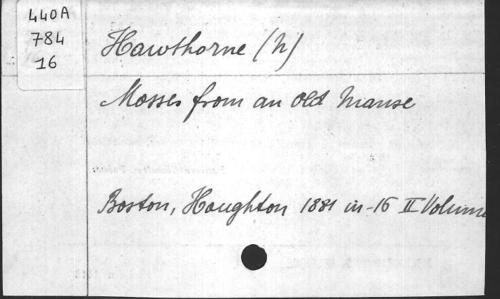 440A
784
16
Hawthorne (N)
Mosses from an old Manse
Boston, Houghton 1881 in-16 II Volume